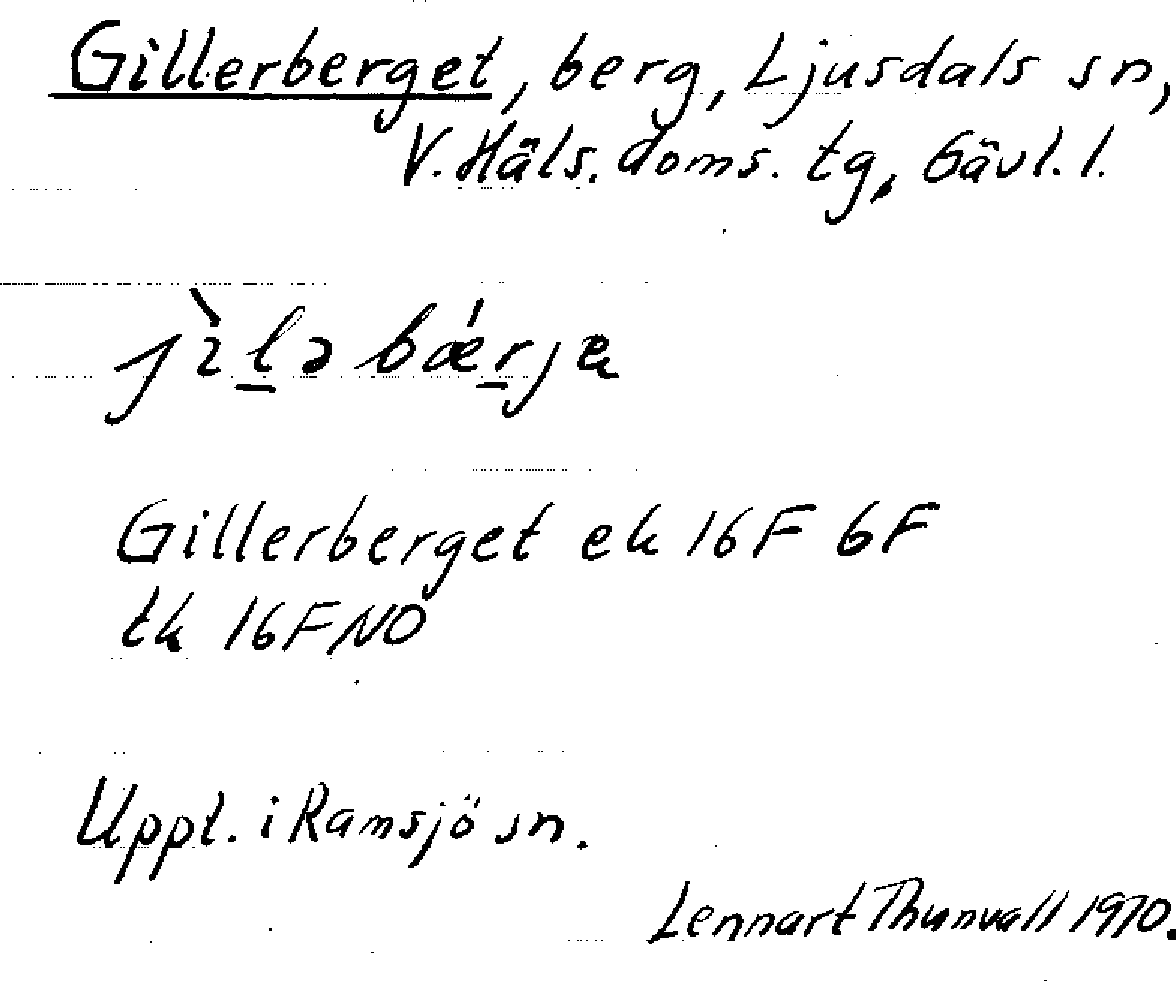 Gillerberget, berg, Ljusdals sn,
V. Häls. doms. tg, Gävl. l.
jìl̲ə bǽr̲je
Gillerberget ek 16F 6F
tk 16F NO
Uppt. i Ramsjö sn.
Lennart Thunvall 1970.